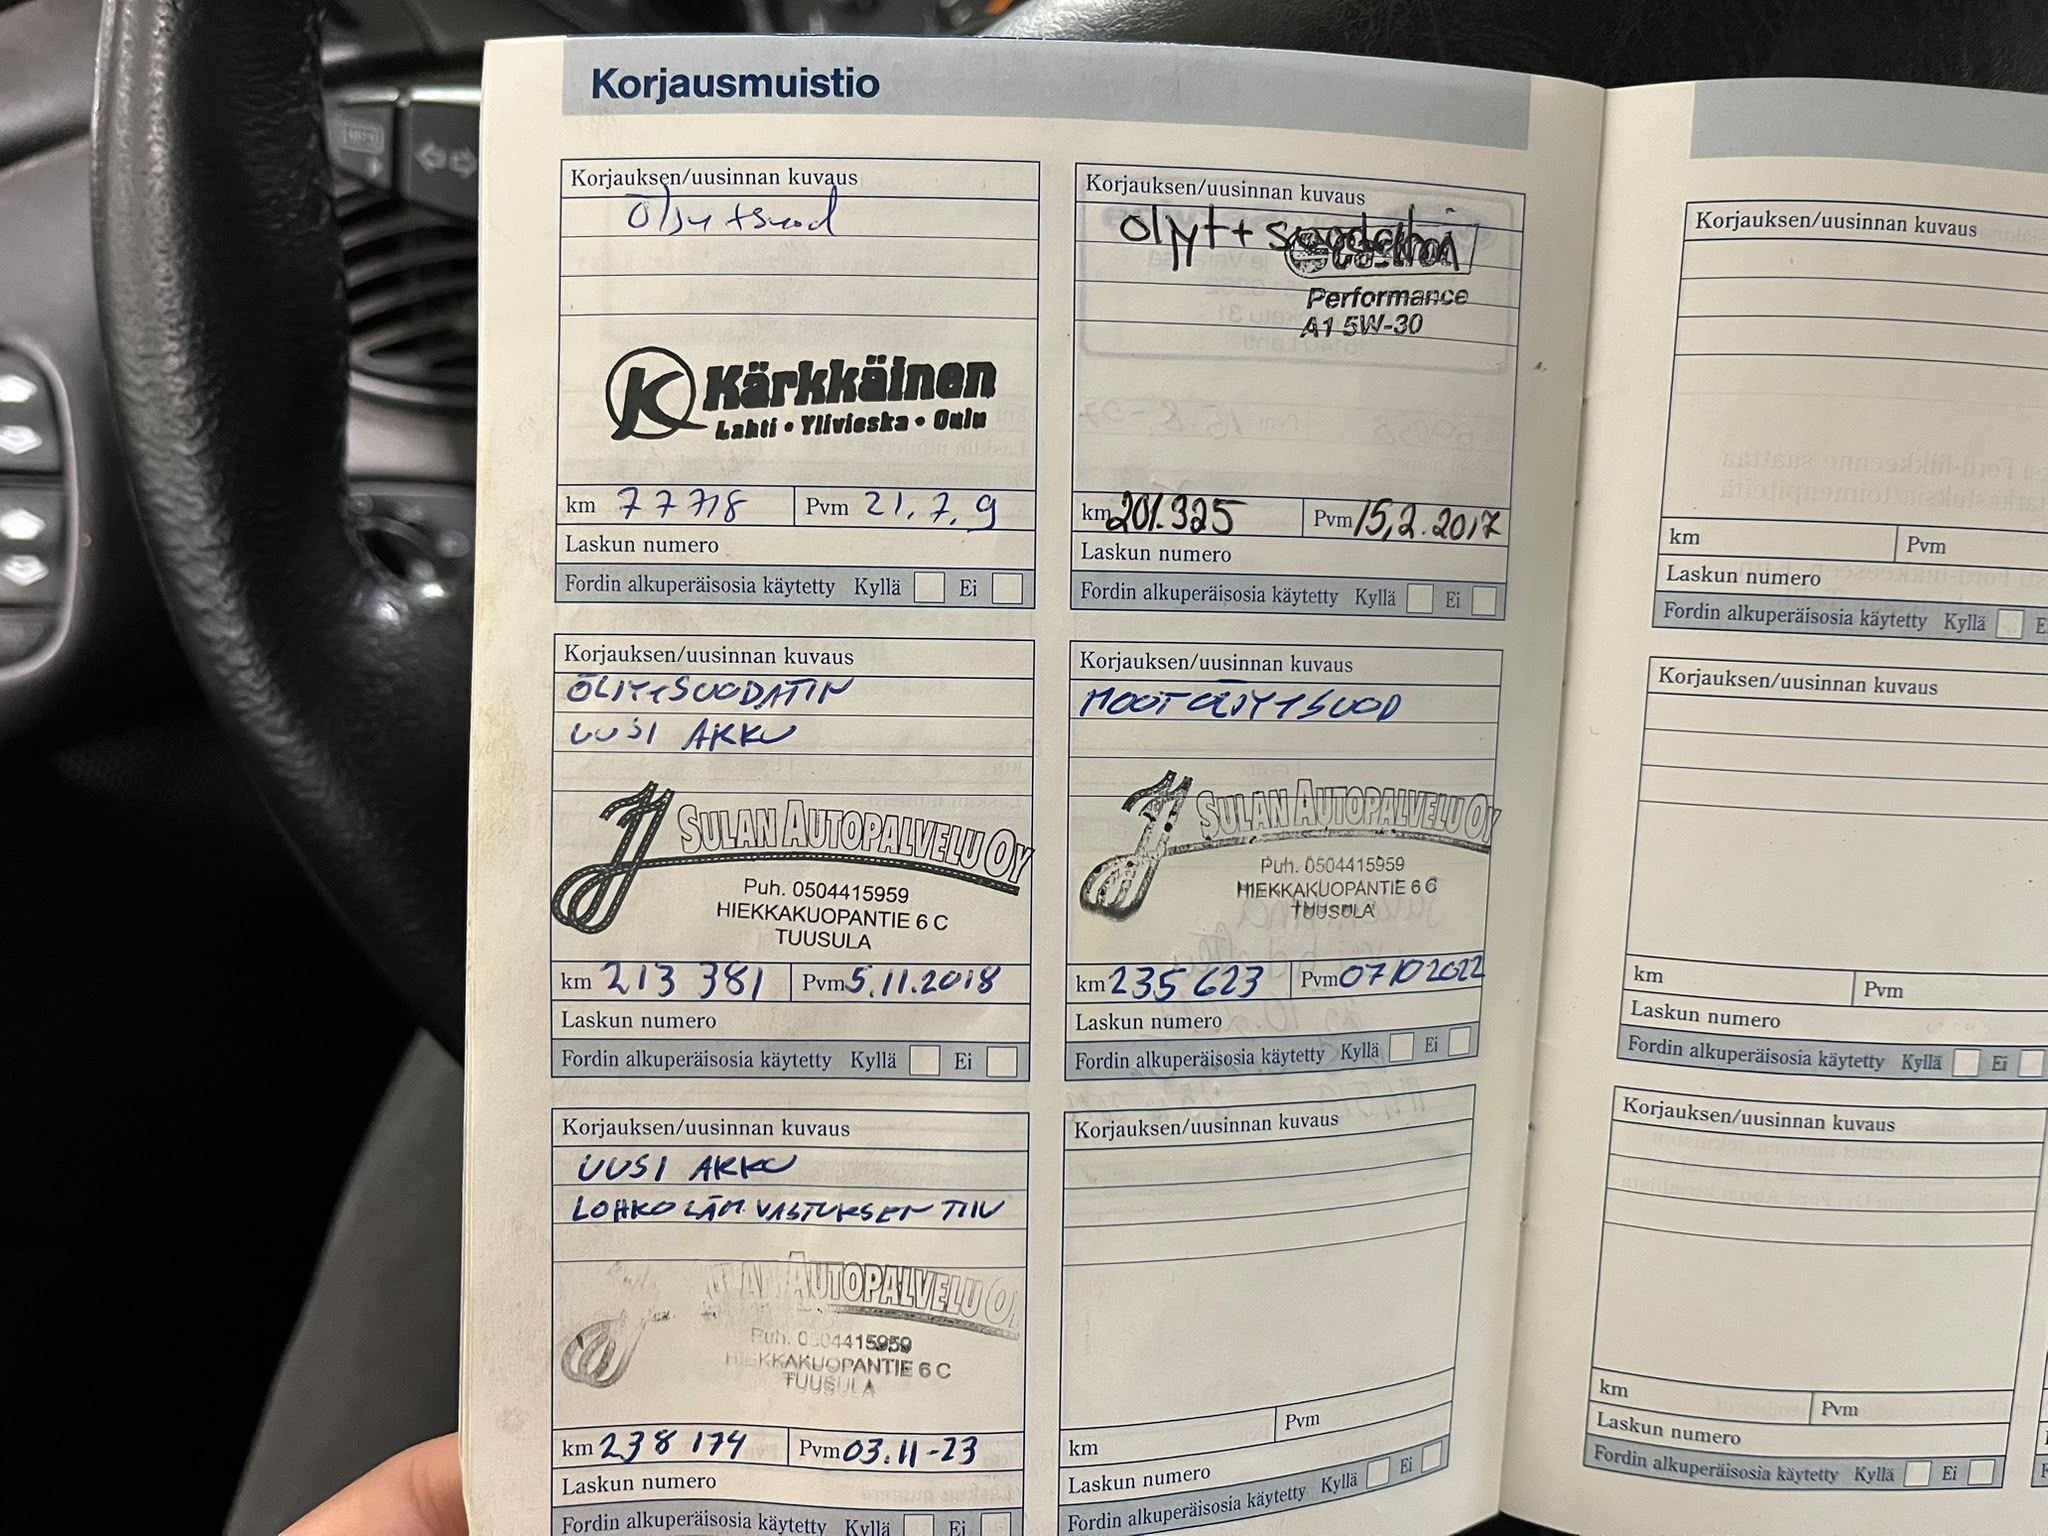 Korjausmuistio
Korjauksen/uusinnan kuvaus
Öljyt+suod
Kärkkäinen
Lahti • Ylivieska • Oulu
km 77718 Pvm 21.7.9
Laskun numero
Fordin alkuperäisosia käytetty Kyllä Ei
Korjauksen/uusinnan kuvaus
öljyt+
Performance
A1 5W-30
km 201.325 Pvm 15.2.2017
Laskun numero
Fordin alkuperäisosia käytetty Kyllä Ei
Korjauksen/uusinnan kuvaus
ÖLJYT+SUODATIN
UUSI AKKU
SULAN AUTOPALVELU OY
Puh. 0504415959
HIEKKAKUOPANTIE 6 C
TUUSULA
km 213 381 Pvm 5.11.2018
Laskun numero
Fordin alkuperäisosia käytetty Kyllä Ei
Korjauksen/uusinnan kuvaus
MOOTÖLJYT+SUOD
SULAN AUTOPALVELU OY
Puh. 0504415959
HIEKKAKUOPANTIE 6 C
TUUSULA
km 235 623 Pvm 07102022
Laskun numero
Fordin alkuperäisosia käytetty Kyllä Ei
Korjauksen/uusinnan kuvaus
UUSI AKKU
LOHKOLÄM. VASTUKSEN TIIV
AUTOPALVELU
Puh. 0504415959
HIEKKAKUOPANTIE 6 C
TUUSULA
km 238 174 Pvm 03.11-23
Laskun numero
Fordin alkuperäisosia käytetty Kyllä Ei
Korjauksen/uusinnan kuvaus
km Pvm
Laskun numero
Fordin alkuperäisosia käytetty Kyllä Ei
Korjauksen/uusinnan kuvaus
km Pvm
Laskun numero
Fordin alkuperäisosia käytetty Kyllä
Korjauksen/uusinnan kuvaus
km Pvm
Laskun numero
Fordin alkuperäisosia käytetty Kyllä Ei
Korjauksen/uusinnan kuvaus
km Pvm
Laskun numero
Fordin alkuperäisosia käytetty Kyllä Ei